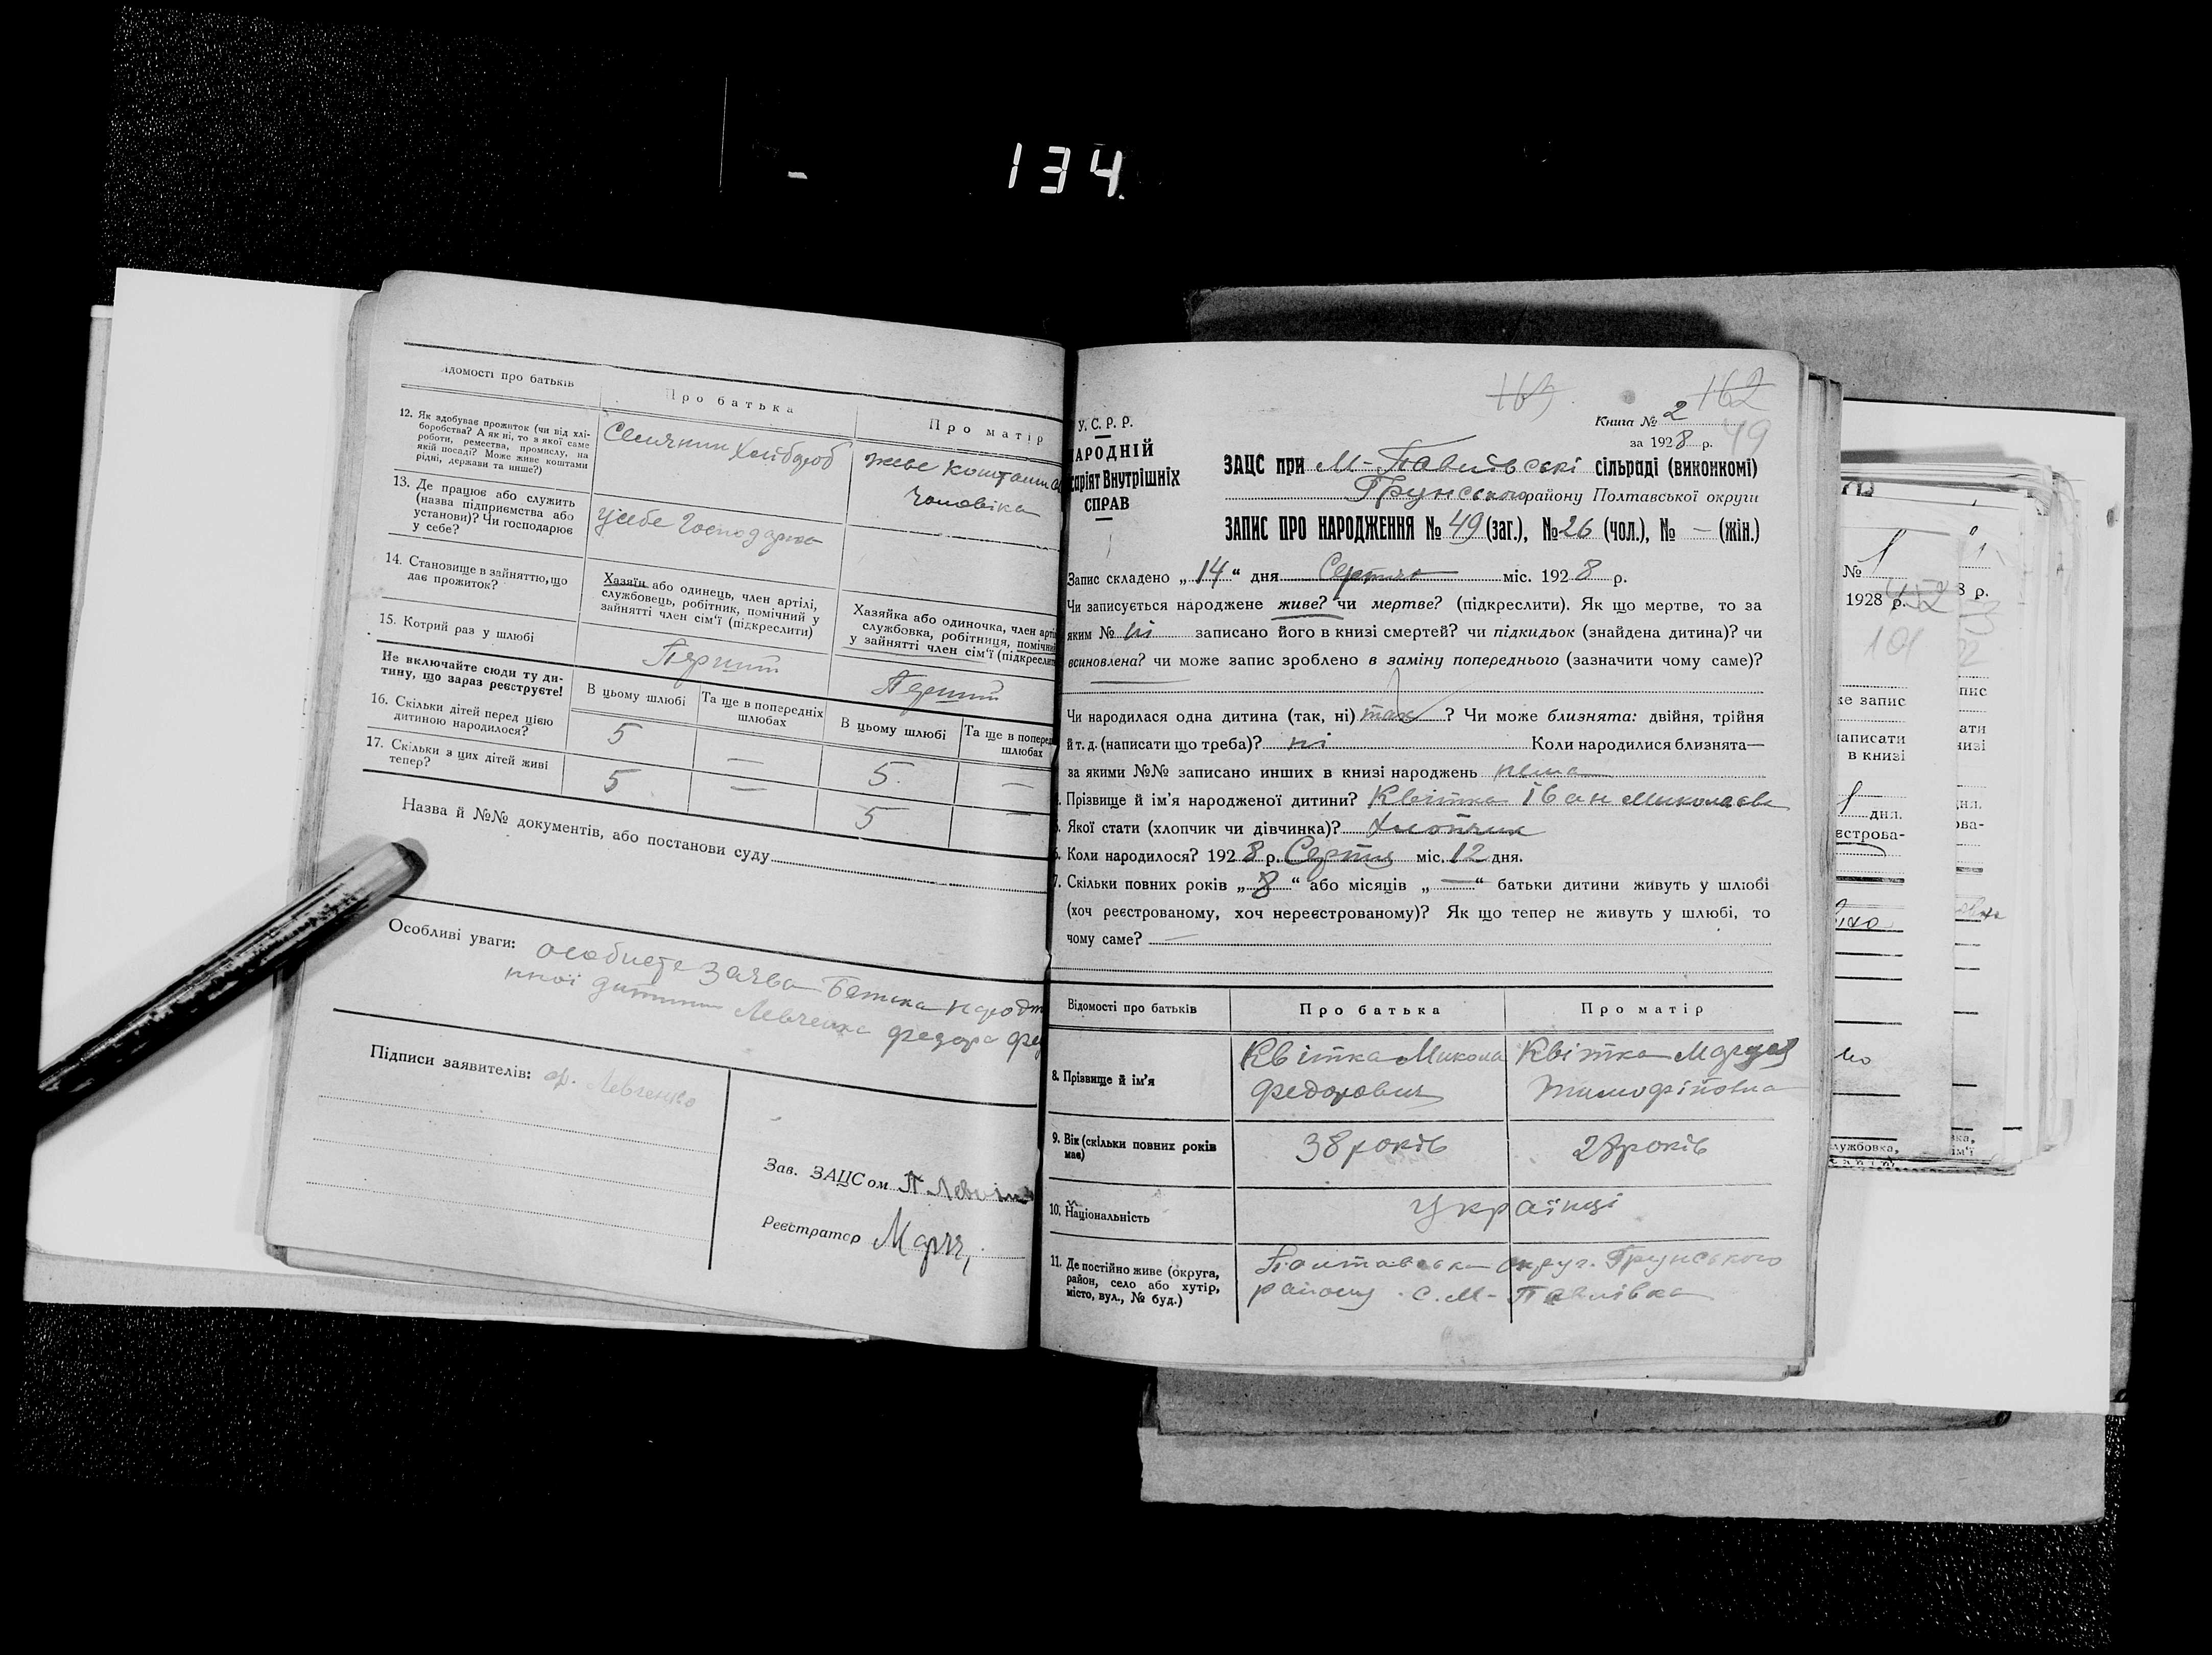 134
ідомості про батьків
Про батька
Про матір
12. Як здобуває прожиток (чи від хлі-
боробства? А як ні, то з якої саме
роботи, ремества, промислу, на
якій посаді? Може живе коштами
рідні, держави та инше?)
Селянин Хлібороб
живе коштами
чоловіка
13. Де працює або служить
(назва підприємства або
установи)? Чи господарює
у себе?
усебе Господарює
14. Становище в зайняттю, що
дає прожиток?
Хазяїн або одинець, член артілі,
службовець, робітник, помічний у
зайнятті член сім'ї (підкреслити)
Хазяйка або одиночка, член арті
службовка, робітниця, помічни
у зайнятті член сім'ї (підкреслит
15. Котрий раз у шлюбі
Перший
Перший
Не включайте сюди ту ди-
тину, що зараз реєструєте!
В цьому шлюбі
Та ще в попередніх
шлюбах
В цьому шлюбі
Та ще в поперед
шлюбах
16. Скільки дітей перед цією
дитиною народилося?
5 — 5 —
17. Скільки з цих дітей живі
тепер?
5 — 5 —
Назва й №№ документів, або постанови суду
Особливі уваги: особисте заява Батька народж
нної дитини Левченка Федора Фед
Підписи заявителів: Ф. Левченко
Зав. ЗАЦСом
Реєстратор
163 162
Книга № 2
за 1928 р. 49
У. С. Р. Р.
АРОДНІЙ
саріят Внутрішніх
СПРАВ
ЗАЦС при М-Павлівські сільраді (виконкомі)
Грунського району Полтавської округи
ЗАПИС ПРО НАРОДЖЕННЯ № 49 (заг.), № 26 (чол.), № — (жін.)
Запис складено „14“ дня Серпня міс. 1928 р.
Чи записується народжене живе? чи мертве? (підкреслити). Як що мертве, то за
яким № ні записано його в книзі смертей? чи підкидьок (знайдена дитина)? чи
всиновлена? чи може запис зроблено в заміну попереднього (зазначити чому саме)?
Чи народилася одна дитина (так, ні) так ? Чи може близнята: двійня, трійня
й т. д. (написати що треба)? ні Коли народилися близнята—
за якими №№ записано инших в книзі народжень нема
Прізвище й ім'я народженої дитини? Квітка Іван Миколаєв
Якої стати (хлопчик чи дівчинка)? Хлопчик
Коли народилося? 1928 р. Серпня міс. 12 дня.
7. Скільки повних років „8“ або місяців „—“ батьки дитини живуть у шлюбі
(хоч реєстрованому, хоч нереєстрованому)? Як що тепер не живуть у шлюбі, то
чому саме? —
Відомості про батьків
Про батька
Про матір
8. Прізвище й ім'я
Квітка Микола
Федорович
Квітка
Тимофіївна
9. Вік (скільки повних років
має)
38 років
28 років
10. Національність
Українці
11. Де постійно живе (округа,
район, село або хутір,
місто, вул., № буд.)
Полтавська округ. Грунського
району. с. М-Павлівка
№ 1
1928 р.
452
8 р.
101
же запис
пис
написати
ати
в книзі
дня.
єстрова-
службовка,